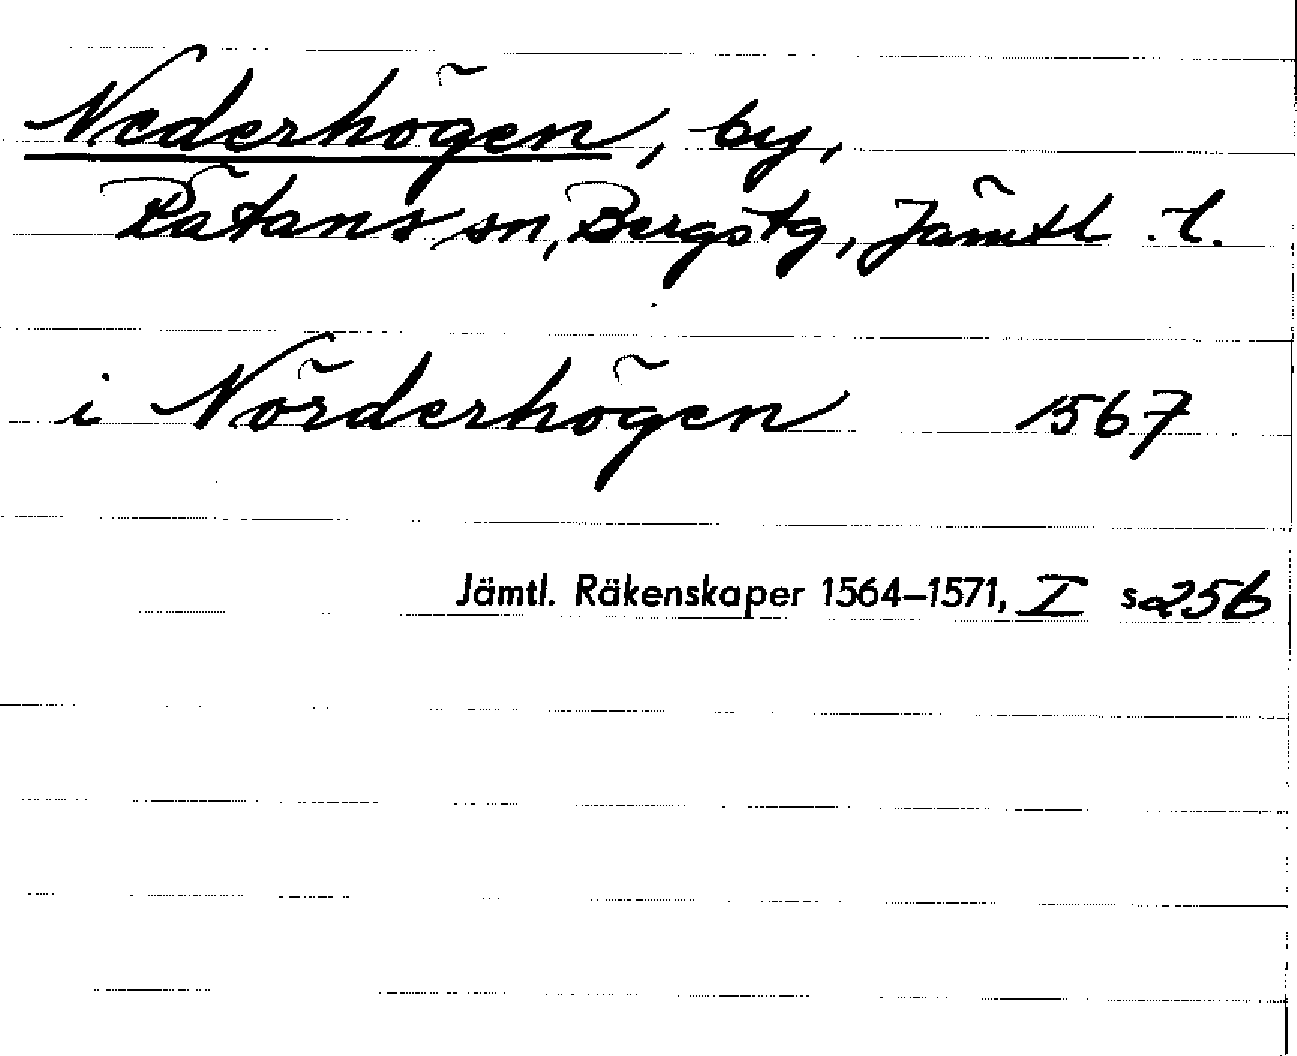 Nederhögen, by,
Rätans sn, Bergs tg, Jämtl. l.
i Nörderhögen 1567
Jämtl. Räkenskaper 1564–1571, I s 256